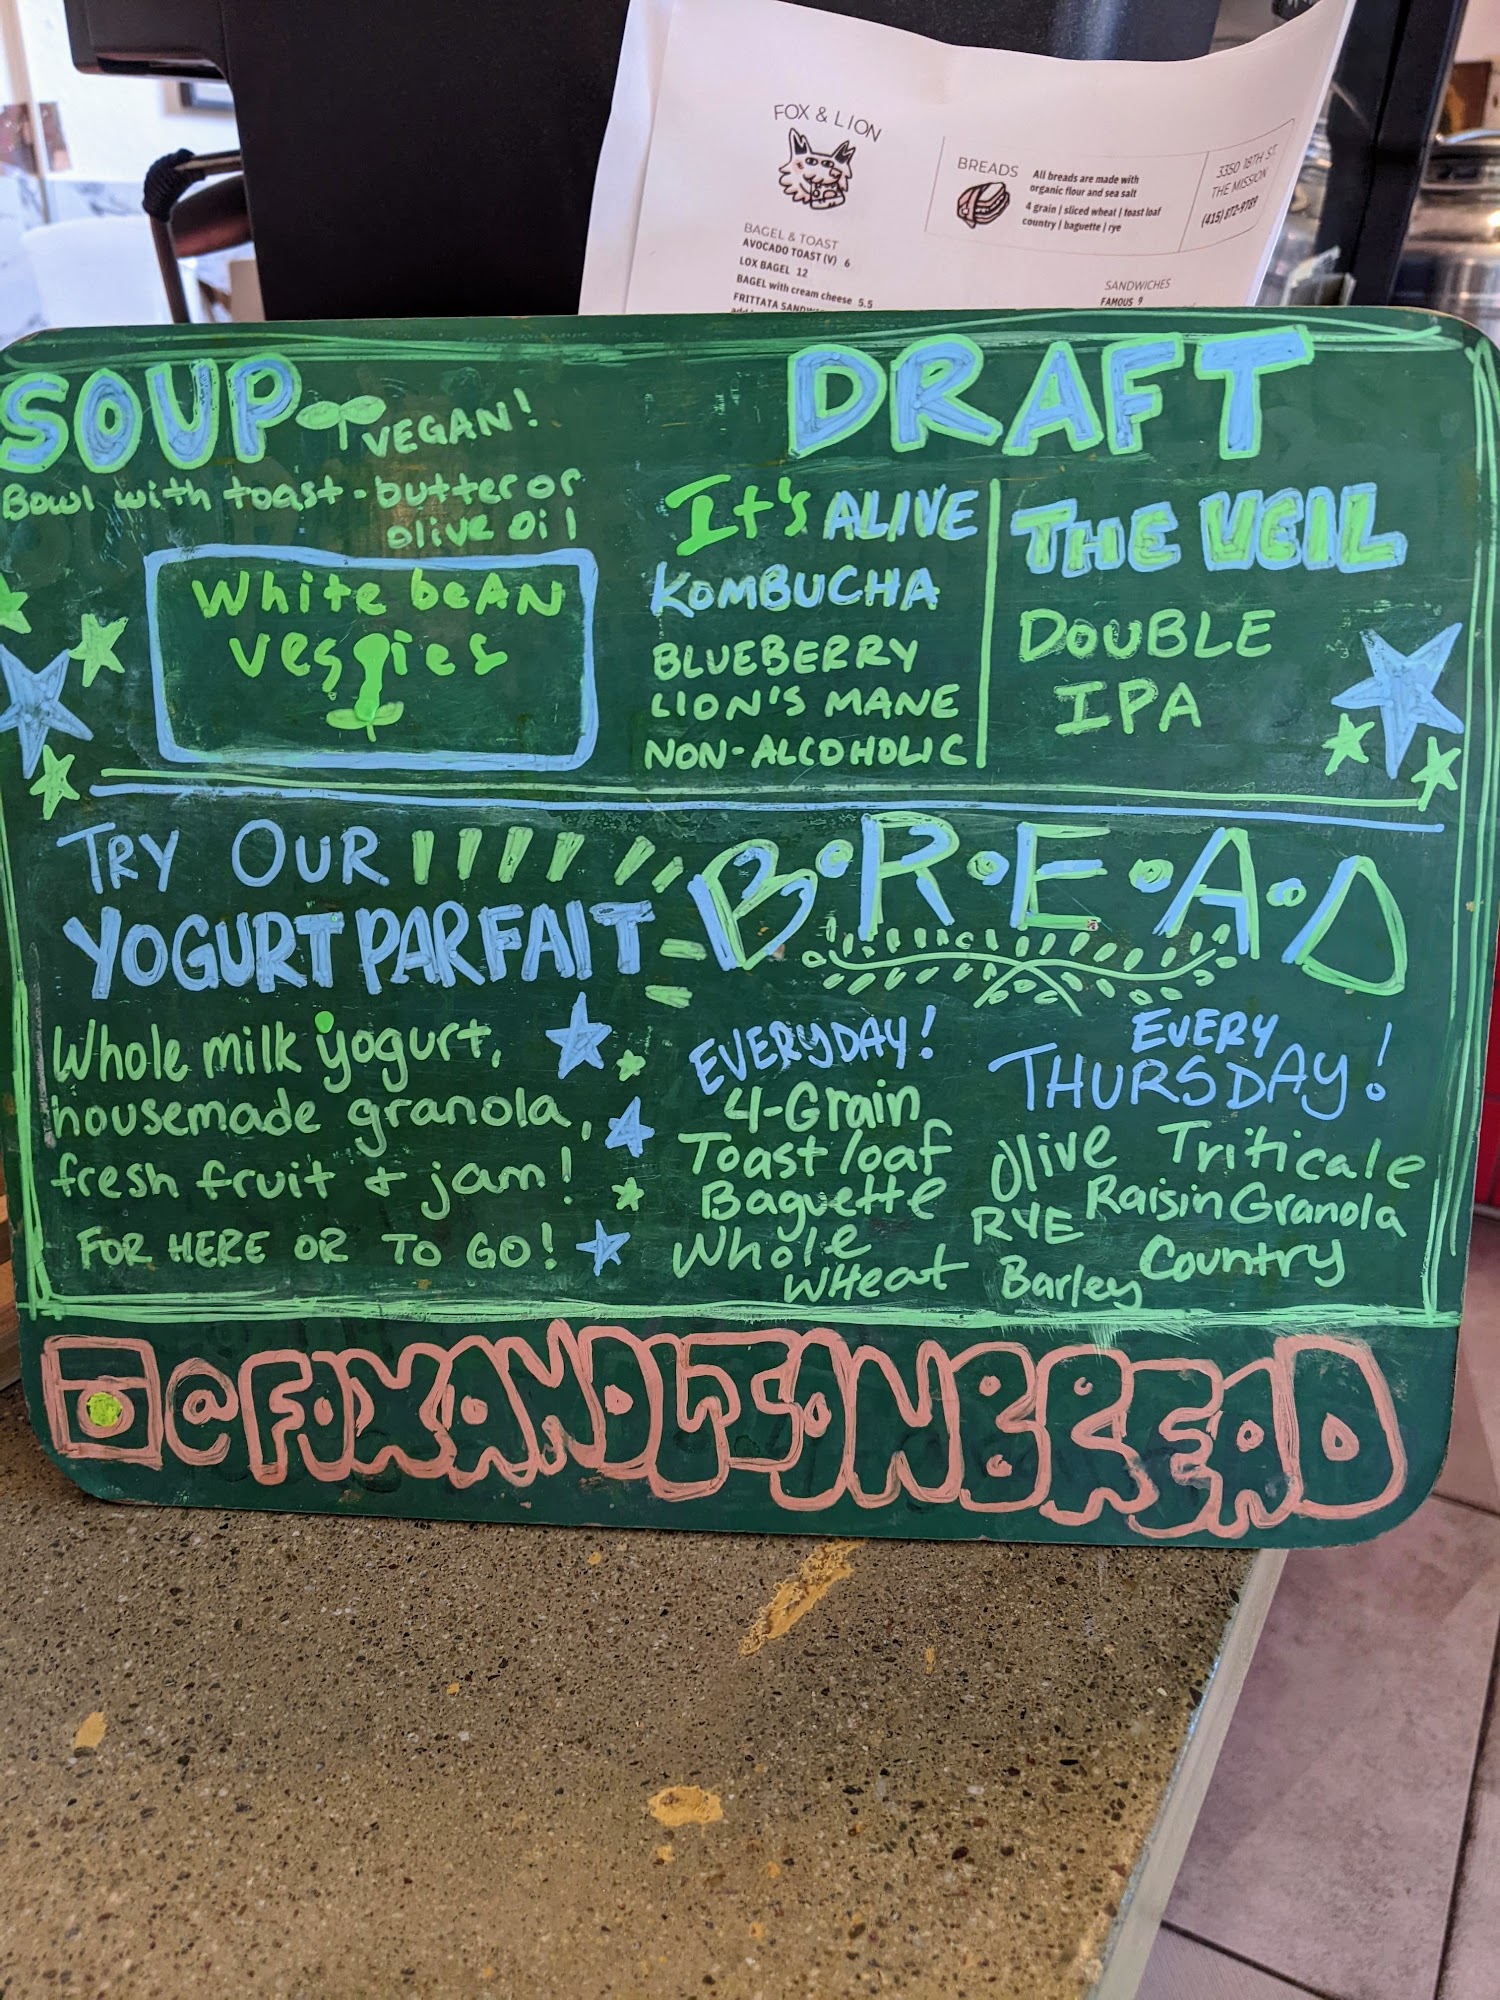 FOX & LION
BREADS
All breads are made with
organic flour and sea salt
4 grain | sliced wheat | toast loaf
country | baguette | rye
3350 18TH ST.
THE MISSION
(415) 872-9789
BAGEL & TOAST
AVOCADO TOAST (V) 6
LOX BAGEL 12
BAGEL with cream cheese 5.5
FRITTATA
SANDWICHES
FAMOUS 9
SOUP VEGAN!
Bowl with toast - butter or
olive oil
White beAN
veggies
DRAFT
It's ALIVE
KOMBUCHA
BLUEBERRY
LION'S MANE
NON-ALCOHOLIC
THE VEIL
DOUBLE
IPA
TRY OUR
YOGURT PARFAIT
Whole milk yogurt,
housemade granola,
fresh fruit + jam!
FOR HERE OR TO GO!
B•R•E•A•D
EVERYDAY!
4-Grain
Toast loaf
Baguette
Whole
WHeat
EVERY
THURSDAY!
Olive Triticale
RYE Raisin Granola
Barley Country
@FOXANDLIONBREAD